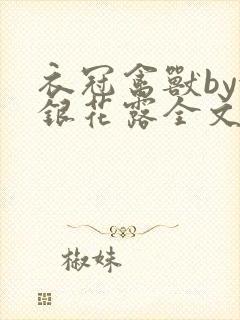 衣冠禽獸by
銀花露全文
椒妹